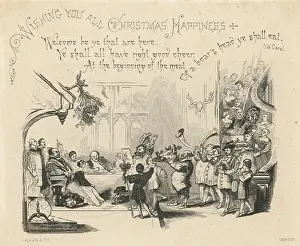 WISHING YOU ALL CHRISTMAS HAPPINESS
Welcome be ye that are here
Ye shall all have right good cheer,
At the beginning of the meat
Of a boar's head ye shall eat.
Old Carol